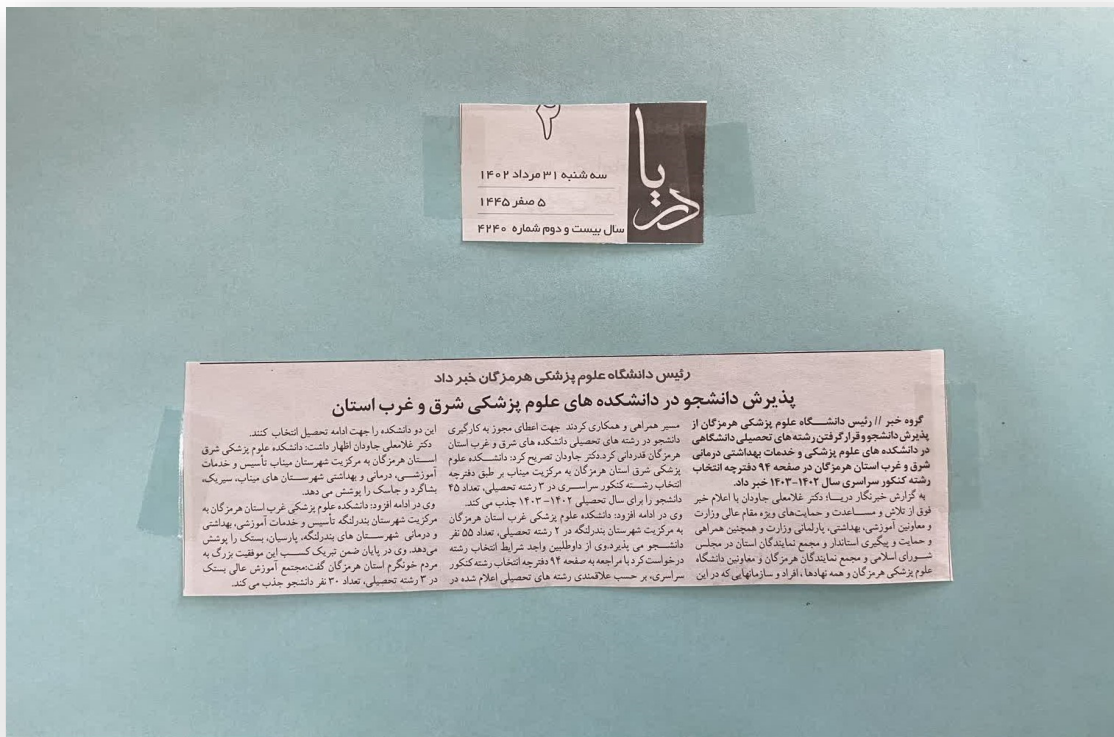 ۲
دریا
سه شنبه ۳۱ مرداد ۱۴۰۲
۵ صفر ۱۴۴۵
سال بیست و دوم شماره ۴۲۴۰
رئیس دانشگاه علوم پزشکی هرمزگان خبر داد
پذیرش دانشجو در دانشکده های علوم پزشکی شرق و غرب استان
گروه خبر // رئیس دانشگاه علوم پزشکی هرمزگان از
پذیرش دانشجو و قرار گرفتن رشته های تحصیلی دانشگاهی
در دانشکده های علوم پزشکی و خدمات بهداشتی درمانی
شرق و غرب استان هرمزگان در صفحه ۹۴ دفترچه انتخاب
رشته کنکور سراسری سال ۱۴۰۲-۱۴۰۳ خبر داد.
به گزارش خبرنگار دریا؛ دکتر غلامعلی جاودان با اعلام خبر
فوق از تلاش و مساعدت و حمایت‌های ویژه مقام عالی وزارت
و معاونین آموزشی، بهداشتی، پارلمانی وزارت و همچنین همراهی
و حمایت و پیگیری استاندار و مجمع نمایندگان استان در مجلس
شورای اسلامی و مجمع نمایندگان هرمزگان و معاونین دانشگاه
علوم پزشکی هرمزگان و همه نهادها ، افراد و سازمانهایی که در این
مسیر همراهی و همکاری کردند جهت اعطای مجوز به کارگیری
دانشجو در رشته های تحصیلی دانشکده های شرق و غرب استان
هرمزگان قدردانی کرد.دکتر جاودان تصریح کرد: دانشکده علوم
پزشکی شرق استان هرمزگان به مرکزیت میناب بر طبق دفترچه
انتخاب رشته کنکور سراسری در ۳ رشته تحصیلی، تعداد ۴۵
دانشجو را برای سال تحصیلی ۱۴۰۲- ۱۴۰۳ جذب می کند.
وی در ادامه افزود: دانشکده علوم پزشکی غرب استان هرمزگان
به مرکزیت شهرستان بندرلنگه در ۲ رشته تحصیلی، تعداد ۵۵ نفر
دانشجو می پذیرد.وی از داوطلبین واجد شرایط انتخاب رشته
درخواست کرد با مراجعه به صفحه ۹۴ دفترچه انتخاب رشته کنکور
سراسری، بر حسب علاقمندی رشته های تحصیلی اعلام شده در
این دو دانشکده را جهت ادامه تحصیل انتخاب کنند.
دکتر غلامعلی جاودان اظهار داشت: دانشکده علوم پزشکی شرق
استان هرمزگان به مرکزیت شهرستان میناب تأسیس و خدمات
آموزشی، درمانی و بهداشتی شهرستان های میناب، سیریک،
بشاگرد و جاسک را پوشش می دهد.
وی در ادامه افزود: دانشکده علوم پزشکی غرب استان هرمزگان به
مرکزیت شهرستان بندرلنگه تأسیس و خدمات آموزشی، بهداشتی
و درمانی شهرستان های بندرلنگه، پارسیان، بستک را پوشش
می‌دهد. وی در پایان ضمن تبریک کسب این موفقیت بزرگ به
مردم خونگرم استان هرمزگان گفت:مجتمع آموزش عالی بستک
در ۳ رشته تحصیلی، تعداد ۳۰ نفر دانشجو جذب می کند.